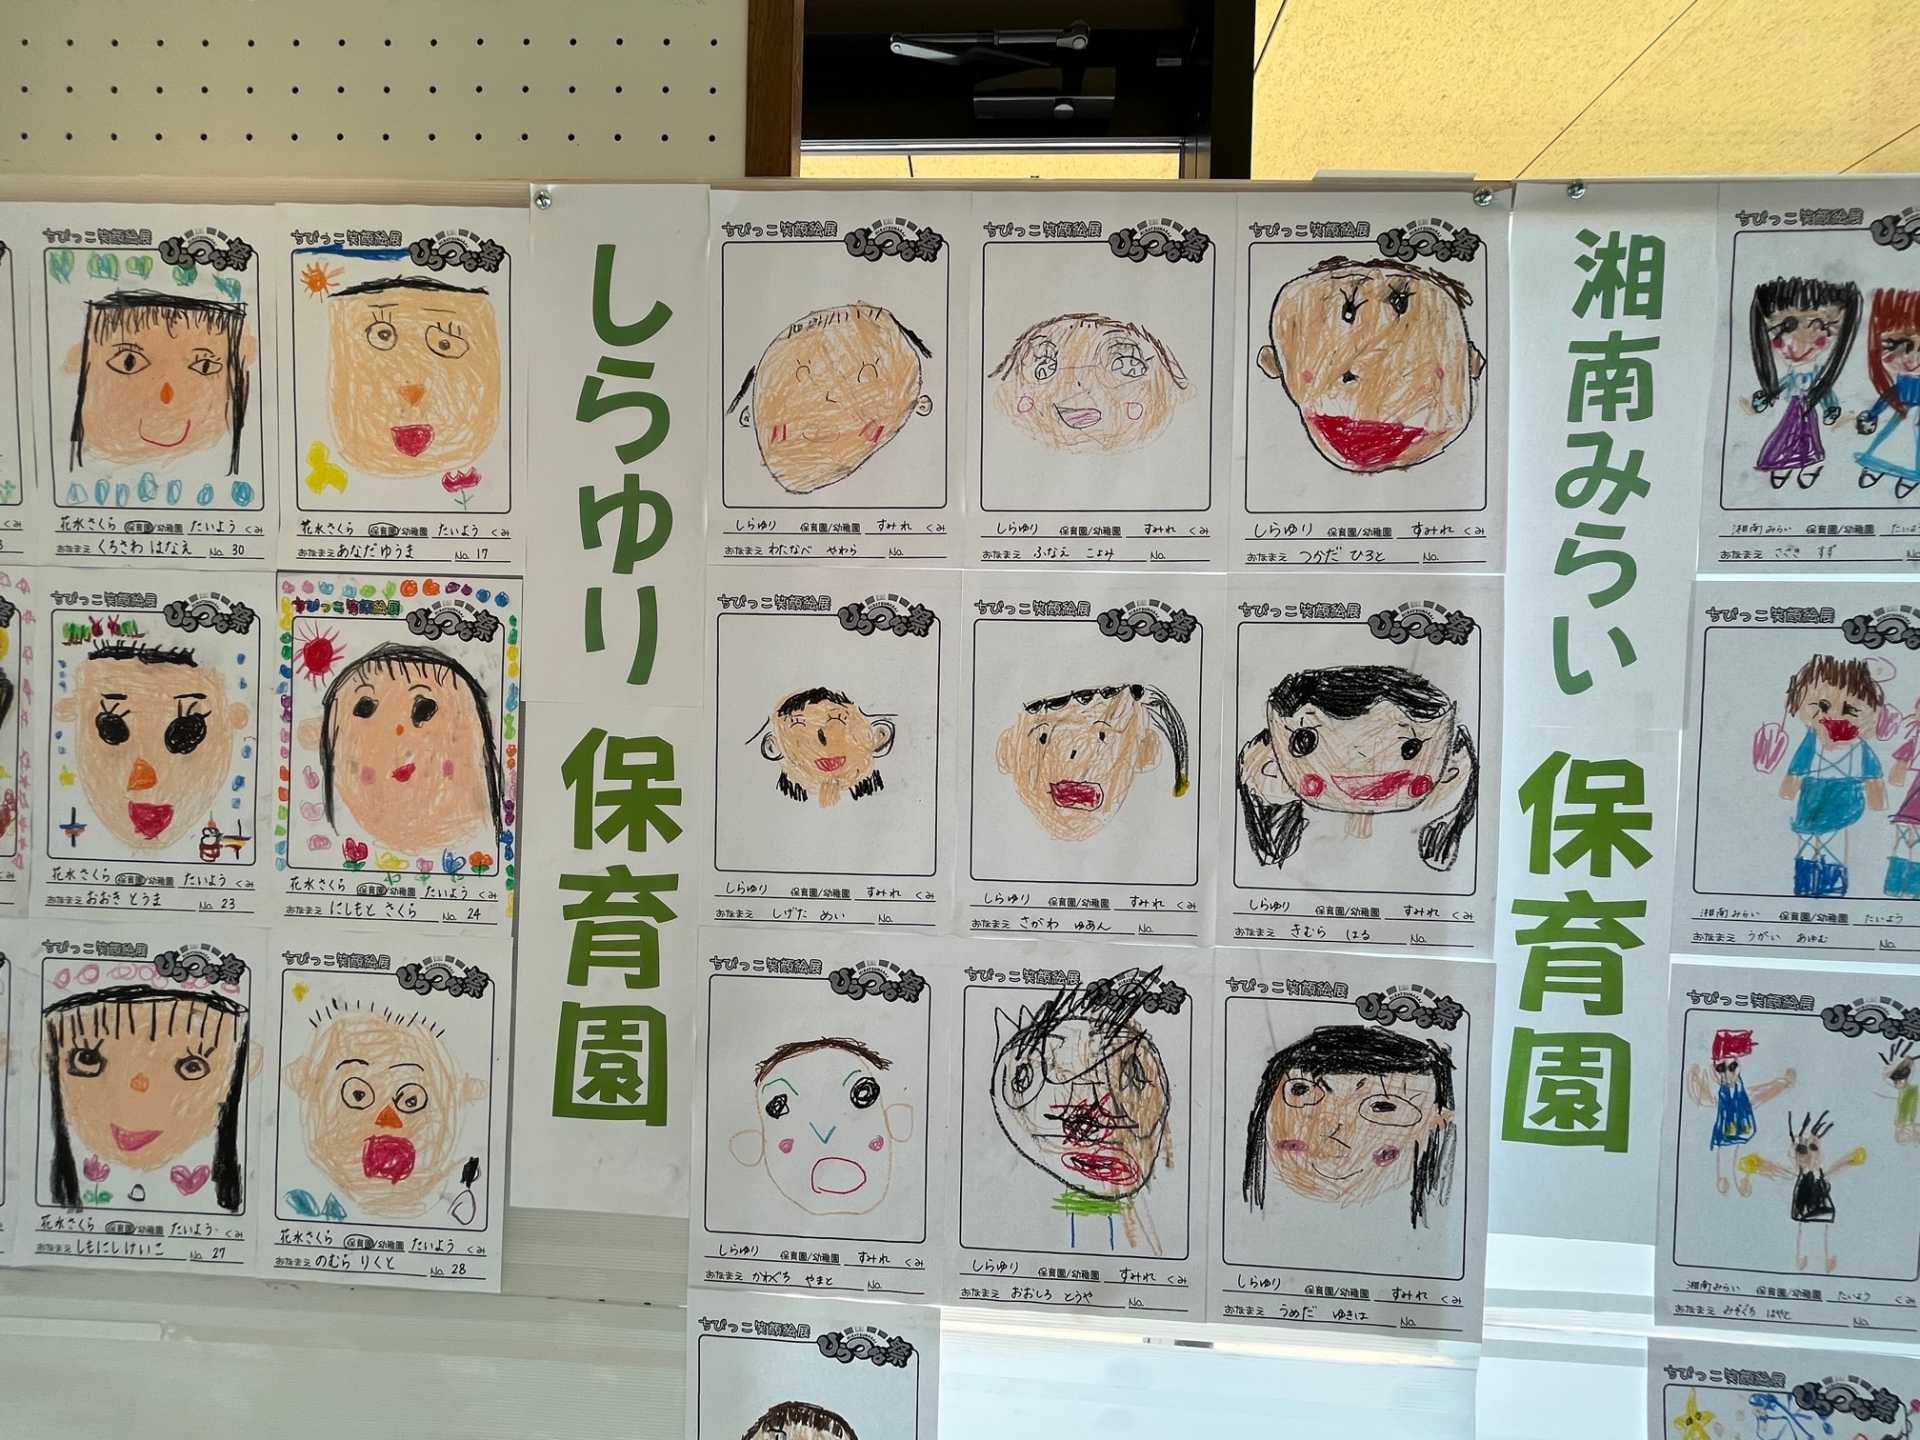 ちびっこ笑顔絵展
ひらつな祭
花水さくら 保育園/幼稚園 たいよう くみ
おなまえ くろさわ はなえ No. 30
ちびっこ笑顔絵展
ひらつな祭
花水さくら 保育園/幼稚園 たいよう くみ
おなまえ あなだ ゆうま No. 17
ちびっこ笑顔絵展
ひらつな祭
花水さくら 保育園/幼稚園 たいよう くみ
おなまえ おおき とうま No. 23
ちびっこ笑顔絵展
ひらつな祭
花水さくら 保育園/幼稚園 たいよう くみ
おなまえ にしもと さくら No. 24
ちびっこ笑顔絵展
ひらつな祭
花水さくら 保育園/幼稚園 たいよう くみ
おなまえ しもにし けいこ No. 27
ちびっこ笑顔絵展
ひらつな祭
花水さくら 保育園/幼稚園 たいよう くみ
おなまえ のむら りくと No. 28
しらゆり 保育園
ちびっこ笑顔絵展
ひらつな祭
しらゆり 保育園/幼稚園 すみれ くみ
おなまえ わたなべ やわら No.
ちびっこ笑顔絵展
ひらつな祭
しらゆり 保育園/幼稚園 すみれ くみ
おなまえ ふなえ こよみ No.
ちびっこ笑顔絵展
ひらつな祭
しらゆり 保育園/幼稚園 すみれ くみ
おなまえ つかだ ひろと No.
ちびっこ笑顔絵展
ひらつな祭
しらゆり 保育園/幼稚園 すみれ くみ
おなまえ しげた めい No.
ちびっこ笑顔絵展
ひらつな祭
しらゆり 保育園/幼稚園 すみれ くみ
おなまえ さがわ ゆあん No.
ちびっこ笑顔絵展
ひらつな祭
しらゆり 保育園/幼稚園 すみれ くみ
おなまえ きむら はる No.
ちびっこ笑顔絵展
ひらつな祭
しらゆり 保育園/幼稚園 すみれ くみ
おなまえ かわぐち やまと No.
ちびっこ笑顔絵展
ひらつな祭
しらゆり 保育園/幼稚園 すみれ くみ
おなまえ おおしろ とうや No.
ちびっこ笑顔絵展
ひらつな祭
しらゆり 保育園/幼稚園 すみれ くみ
おなまえ うめだ ゆきは No.
ちびっこ笑顔絵展
ひらつな祭
湘南みらい 保育園
ちびっこ笑顔絵展
湘南みらい 保育園/幼稚園 たいよう
おなまえ ささき すず No.
ちびっこ笑顔絵展
湘南みらい 保育園/幼稚園 たいよう
おなまえ うがい あゆむ No.
ちびっこ笑顔絵展
湘南みらい 保育園/幼稚園 たいよう くみ
おなまえ みぞぐち はやと No.
ちびっこ笑顔絵展
ひらつな祭